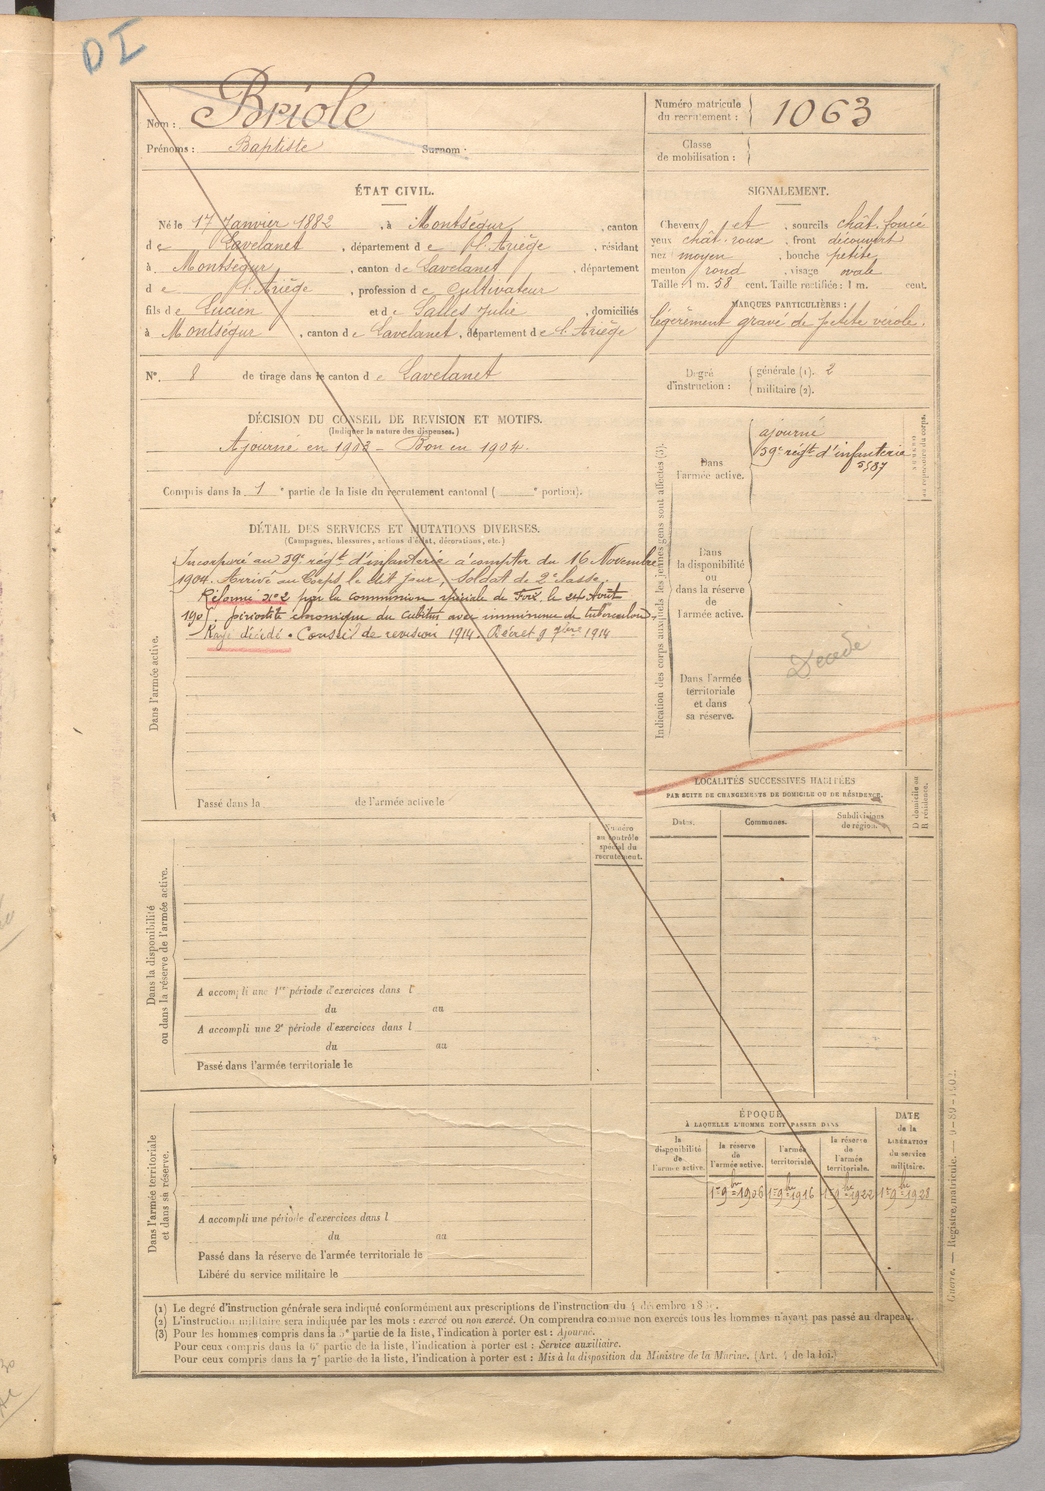 DI
Nom : Briole
Prénoms : Baptiste Surnom :
Numéro matricule
du recrutement : 1063
Classe
de mobilisation :
ÉTAT CIVIL.
Né le 17 Janvier 1882, à Montségur, canton
de Lavelanet, département de l'Ariège, résidant
à Montségur, canton de Lavelanet, département
de l'Ariège, profession de cultivateur
fils de Lucien et de Salles Julie, domiciliés
à Montségur, canton de Lavelanet, département de l'Ariège
N°. 8 de tirage dans le canton de Lavelanet
SIGNALEMENT.
Cheveux et, sourcils chât. foncé
yeux chât. roux, front découvert
nez moyen, bouche petite
menton rond, visage ovale
Taille : 1 m. 58 cent. Taille rectifiée : 1 m. cent.
MARQUES PARTICULIÈRES :
légèrement gravé de petite verole.
Degré
d'instruction :
générale (1). 2
militaire (2).
DÉCISION DU CONSEIL DE REVISION ET MOTIFS.
(Indiquer la nature des dispenses.)
Ajourné en 1903 - Bon en 1904.
Compris dans la 1e partie de la liste du recrutement cantonal ( e portion).
DÉTAIL DES SERVICES ET MUTATIONS DIVERSES.
(Campagnes, blessures, actions d'éclat, décorations, etc.)
Incorporé au 59e régt d'infanterie à compter du 16 Novembre
1904. Arrivé au Corps le dit jour, soldat de 2e classe.
Réformé n°2 par la commission spéciale de Foix le 24 Août
périostite chronique du cubitus avec imminence de tuberculose.
Rayé décédé. Conseil de revision 1914. Décret 9 7bre 1914
Dans l'armée active.
Passé dans la de l'armée active le
Indication des corps auxquels les jeunes gens sont affectés (3).
Dans
l'armée active.
ajourné
59e régt d'infanterie
5587
Dans
la disponibilité
ou
dans la réserve
de
l'armée active.
Dans l'armée
territoriale
et dans
sa réserve.
Décédé
LOCALITÉS SUCCESSIVES HABITÉES
PAR SUITE DE CHANGEMENTS DE DOMICILE OU DE RÉSIDENCE.
Dates. Communes. Subdivisions
de région.
D domicile ou
R résidence.
Numéro
au contrôle
spécial du
recrutement.
Dans la disponibilité
ou dans la réserve de l'armée active.
A accompli une 1re période d'exercices dans l
du au
A accompli une 2e période d'exercices dans l
du au
Passé dans l'armée territoriale le
Dans l'armée territoriale
et dans sa réserve.
A accompli une période d'exercices dans l
du au
Passé dans la réserve de l'armée territoriale le
Libéré du service militaire le
ÉPOQUE
À LAQUELLE L'HOMME DOIT PASSER DANS
la
disponibilité
de
l'armée active.
la réserve
de
l'armée active.
l'armée
territoriale.
la réserve
de
l'armée
territoriale.
DATE
de la
LIBÉRATION
du service
militaire.
1er 9bre 1906 1er 9bre 1916 1er 9bre 1922 1er 9bre 1928
(1) Le degré d'instruction générale sera indiqué conformément aux prescriptions de l'instruction du 4 décembre
(2) L'instruction militaire sera indiquée par les mots : exercé ou non exercé. On comprendra comme non exercés tous les hommes n'ayant pas passé au drapeau.
(3) Pour les hommes compris dans la 5e partie de la liste, l'indication à porter est : Ajourné.
Pour ceux compris dans la 6e partie de la liste, l'indication à porter est : Service auxiliaire.
Pour ceux compris dans la 7e partie de la liste, l'indication à porter est : Mis à la disposition du Ministre de la Marine. (Art. 4 de la loi.)
Guerre. — Registre matricule. — 9-89-1902.